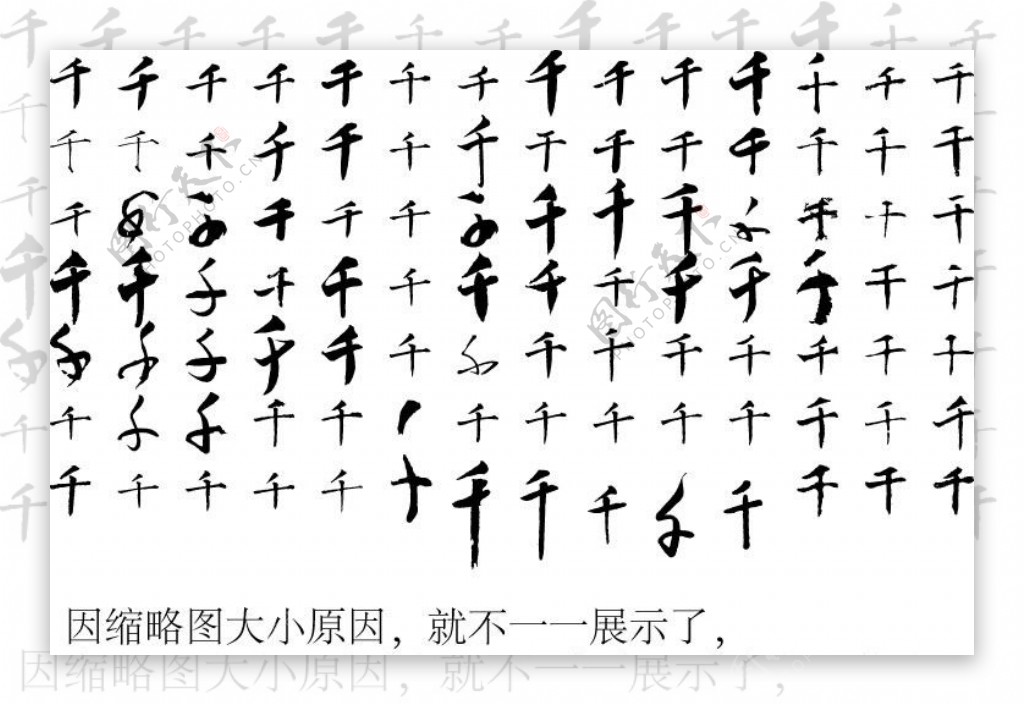 千千千千千千千千千千千千千千
千千千千千千千千千千千千千千
千千千千千千千千千千千千千千
千千千千千千千千千千千千千千
千千千千千千千千千千千千千千
千千千千千千千千千千千千千
千千千千千千千千千千千千千千
因缩略图大小原因，就不一一展示了，
因缩略图大小原因，就不一一展示了，